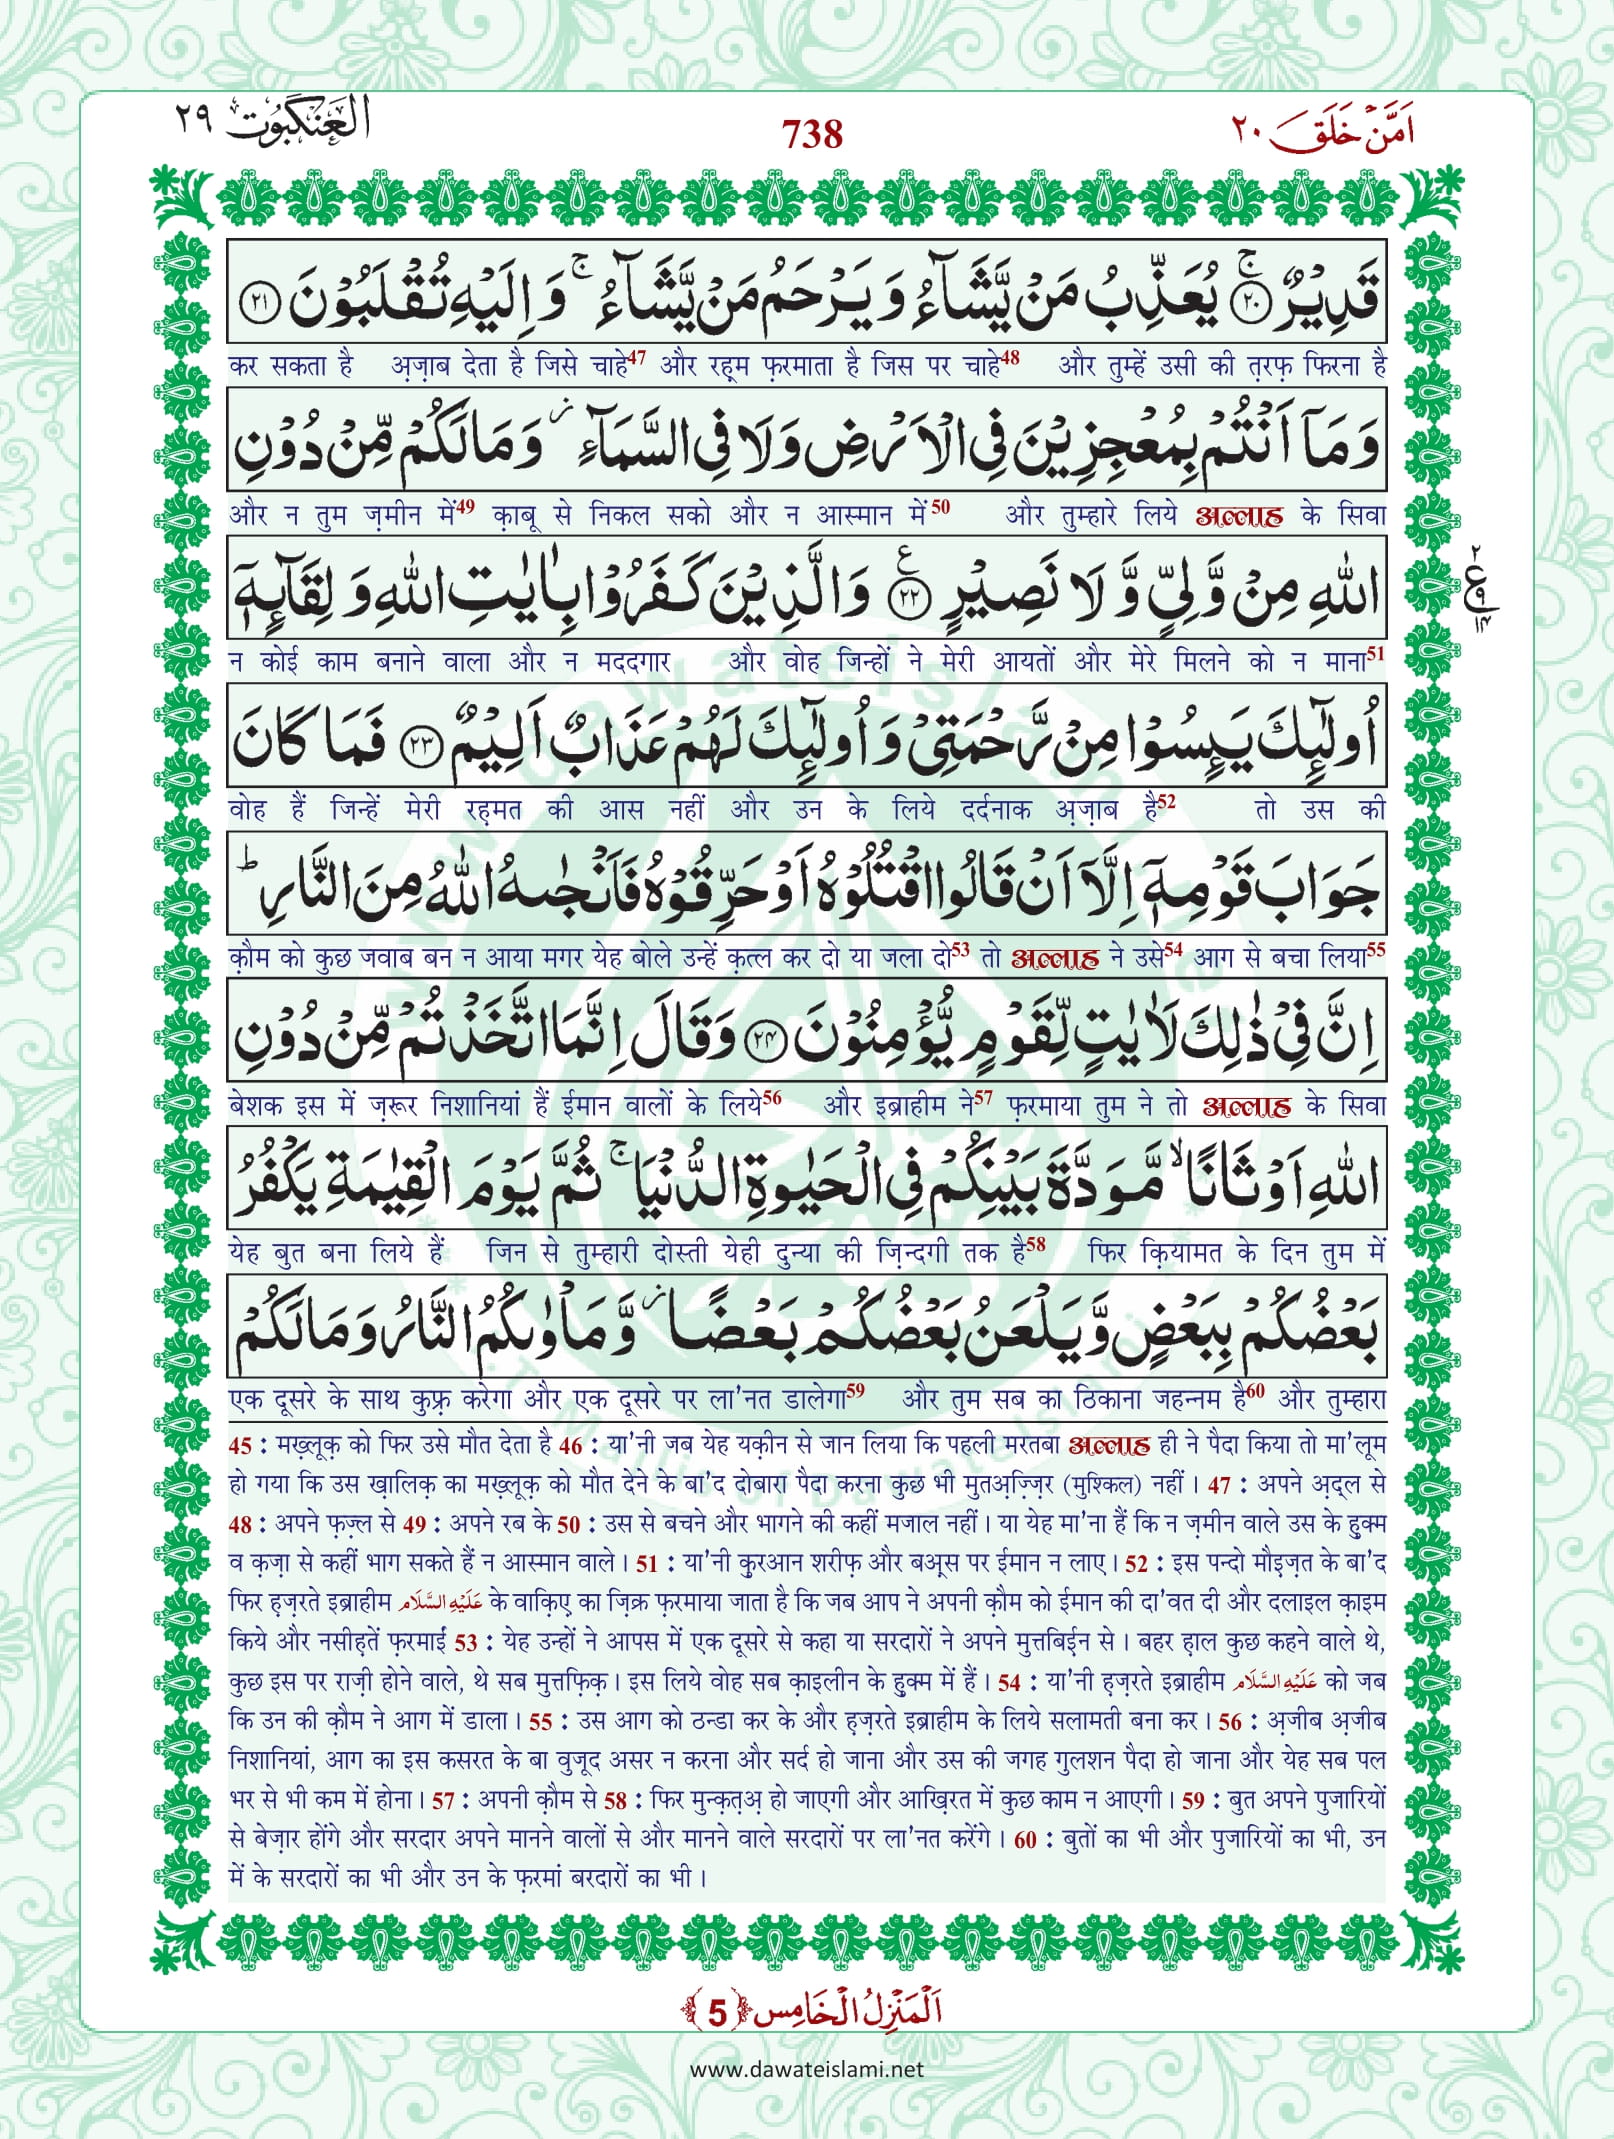 اَمَّنْ خَلَقَ ٢٠
738
الْعَنْكَبُوْت ٢٩
قَدِیْرٌ ۚ﴿٢٠﴾ یُعَذِّبُ مَنْ یَّشَآءُ وَ یَرْحَمُ مَنْ یَّشَآءُ ۚ وَ اِلَیْهِ تُقْلَبُوْنَ ﴿٢١﴾
कर सकता है अ़ज़ाब देता है जिसे चाहे47 और रह़्म फ़रमाता है जिस पर चाहे48 और तुम्हें उसी की त़रफ़ फिरना है
وَ مَاۤ اَنْتُمْ بِمُعْجِزِیْنَ فِی الْاَرْضِ وَ لَا فِی السَّمَآءِ ؗ وَ مَا لَكُمْ مِّنْ دُوْنِ
और न तुम ज़मीन में49 क़ाबू से निकल सको और न आस्मान में50 और तुम्हारे लिये अल्लाह के सिवा
اللّٰهِ مِنْ وَّلِیٍّ وَّ لَا نَصِیْرٍ ﴿٢٢﴾ ع وَ الَّذِیْنَ كَفَرُوْا بِاٰیٰتِ اللّٰهِ وَ لِقَآىٕهٖۤ
ع ٢ ٩ ١٤
न कोई काम बनाने वाला और न मददगार और वोह जिन्हों ने मेरी आयतों और मेरे मिलने को न माना51
اُولٰٓىٕكَ یَىٕسُوْا مِنْ رَّحْمَتِیْ وَ اُولٰٓىٕكَ لَهُمْ عَذَابٌ اَلِیْمٌ ﴿٢٣﴾ فَمَا كَانَ
वोह हैं जिन्हें मेरी रह़मत की आस नहीं और उन के लिये दर्दनाक अ़ज़ाब है52 तो उस की
جَوَابَ قَوْمِهٖۤ اِلَّاۤ اَنْ قَالُوا اقْتُلُوْهُ اَوْ حَرِّقُوْهُ فَاَنْجٰىهُ اللّٰهُ مِنَ النَّارِ ؕ
क़ौम को कुछ जवाब बन न आया मगर येह बोले उन्हें क़त्ल कर दो या जला दो53 तो अल्लाह ने उसे54 आग से बचा लिया55
اِنَّ فِیْ ذٰلِكَ لَاٰیٰتٍ لِّقَوْمٍ یُّؤْمِنُوْنَ ﴿٢٤﴾ وَ قَالَ اِنَّمَا اتَّخَذْتُمْ مِّنْ دُوْنِ
बेशक इस में ज़रूर निशानियां हैं ईमान वालों के लिये56 और इब्राहीम ने57 फ़रमाया तुम ने तो अल्लाह के सिवा
اللّٰهِ اَوْثَانًا ۙ مَّوَدَّةَ بَیْنِكُمْ فِی الْحَیٰوةِ الدُّنْیَا ۚ ثُمَّ یَوْمَ الْقِیٰمَةِ یَكْفُرُ
येह बुत बना लिये हैं जिन से तुम्हारी दोस्ती येही दुन्या की ज़िन्दगी तक है58 फिर क़ियामत के दिन तुम में
بَعْضُكُمْ بِبَعْضٍ وَّ یَلْعَنُ بَعْضُكُمْ بَعْضًا ؗ وَّ مَاْوٰىكُمُ النَّارُ وَ مَا لَكُمْ
एक दूसरे के साथ कुफ़्र करेगा और एक दूसरे पर ला'नत डालेगा59 और तुम सब का ठिकाना जहन्नम है60 और तुम्हारा
45 : मख़्लूक़ को फिर उसे मौत देता है 46 : या'नी जब येह यक़ीन से जान लिया कि पहली मरतबा अल्लाह ही ने पैदा किया तो मा'लूम
हो गया कि उस ख़ालिक़ का मख़्लूक़ को मौत देने के बा'द दोबारा पैदा करना कुछ भी मुतअ़ज़्ज़िर (मुश्किल) नहीं । 47 : अपने अ़द्ल से
48 : अपने फ़ज़्ल से 49 : अपने रब के 50 : उस से बचने और भागने की कहीं मजाल नहीं । या येह मा'ना हैं कि न ज़मीन वाले उस के हुक्म
व क़ज़ा से कहीं भाग सकते हैं न आस्मान वाले । 51 : या'नी क़ुरआन शरीफ़ और बअ़्स पर ईमान न लाए । 52 : इस पन्दो मौइ़ज़त के बा'द
फिर ह़ज़रते इब्राहीम عَلَیْهِ السَّلَام के वाक़िए का ज़िक्र फ़रमाया जाता है कि जब आप ने अपनी क़ौम को ईमान की दा'वत दी और दलाइल क़ाइम
किये और नसीह़तें फ़रमाईं 53 : येह उन्हों ने आपस में एक दूसरे से कहा या सरदारों ने अपने मुत्तबिईन से । बहर ह़ाल कुछ कहने वाले थे,
कुछ इस पर राज़ी होने वाले, थे सब मुत्तफ़िक़ । इस लिये वोह सब क़ाइलीन के हुक्म में हैं । 54 : या'नी ह़ज़रते इब्राहीम عَلَیْهِ السَّلَام को जब
कि उन की क़ौम ने आग में डाला । 55 : उस आग को ठन्डा कर के और ह़ज़रते इब्राहीम के लिये सलामती बना कर । 56 : अ़जीब अ़जीब
निशानियां, आग का इस कसरत के बा वुजूद असर न करना और सर्द हो जाना और उस की जगह गुलशन पैदा हो जाना और येह सब पल
भर से भी कम में होना । 57 : अपनी क़ौम से 58 : फिर मुन्क़त़अ़ हो जाएगी और आख़िरत में कुछ काम न आएगी । 59 : बुत अपने पुजारियों
से बेज़ार होंगे और सरदार अपने मानने वालों से और मानने वाले सरदारों पर ला'नत करेंगे । 60 : बुतों का भी और पुजारियों का भी, उन
में के सरदारों का भी और उन के फ़रमां बरदारों का भी ।
اَلْمَنْزِلُ الْخَامِس ﴿5﴾
www.dawateislami.net